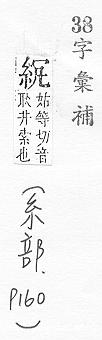 38字彙補
姑等切音
耿井索也
(系部. P160)